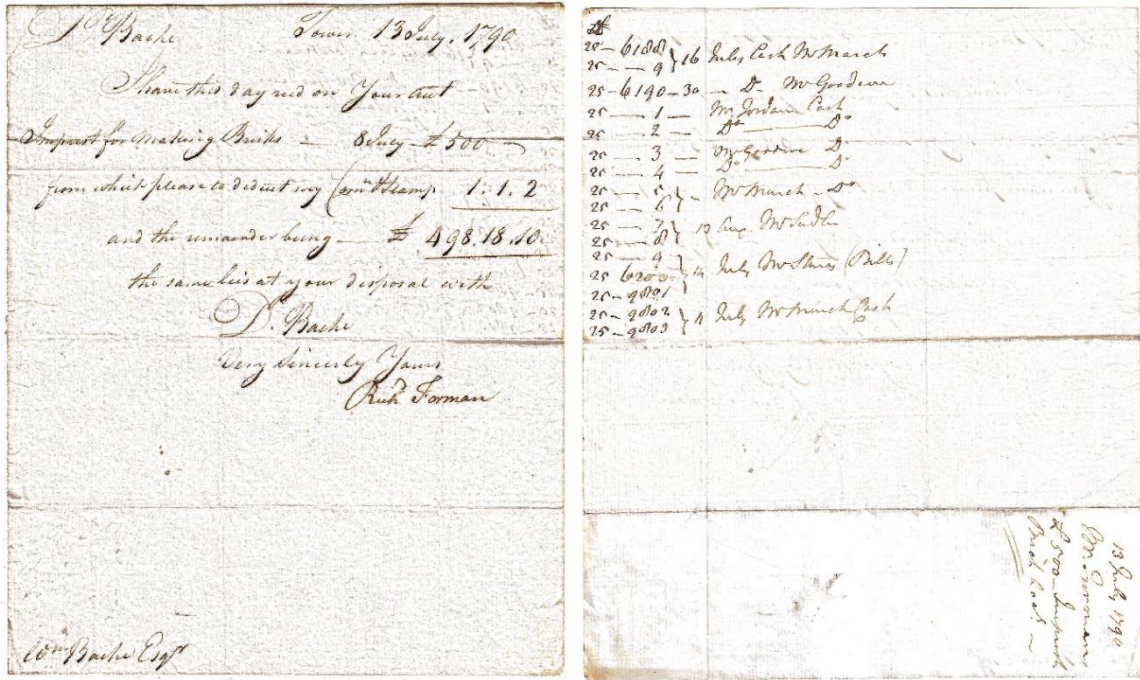 Dr Bache Tower 13 July, 1790
I have this day recd on Your acct
Imprest for making Bricks — 8 July £500 —
from which please to deduct my Comn & Stamp 1. 1. 2
and the remainder being — £ 498. 18. 10
the same lies at your disposal with
Dr. Bache
Very Sincerely Yours
Richd Forman
Wm Bache Esqr
25 — 6188 } 16 July Cash Mr March
25 — — 9
25 — 6190 — 30 — Do Mr Goodwin
25 — 1 — Mr Jordan Cash
25 — 2 — Do — Do
25 — 3 — Mr Goodwin Do
25 — 4 — Do — Do
25 — 5 } — Mr March — Do
25 — 6
25 — 7 } 13 Aug
25 — 8
25 — 9 } 14 July Mr (Bills)
25 6200
25 — 9801
25 — 9802 } 14 July Mr March Cash
25 — 9803
13 July 1790
Mr Forman
£500 Imprest
Brick